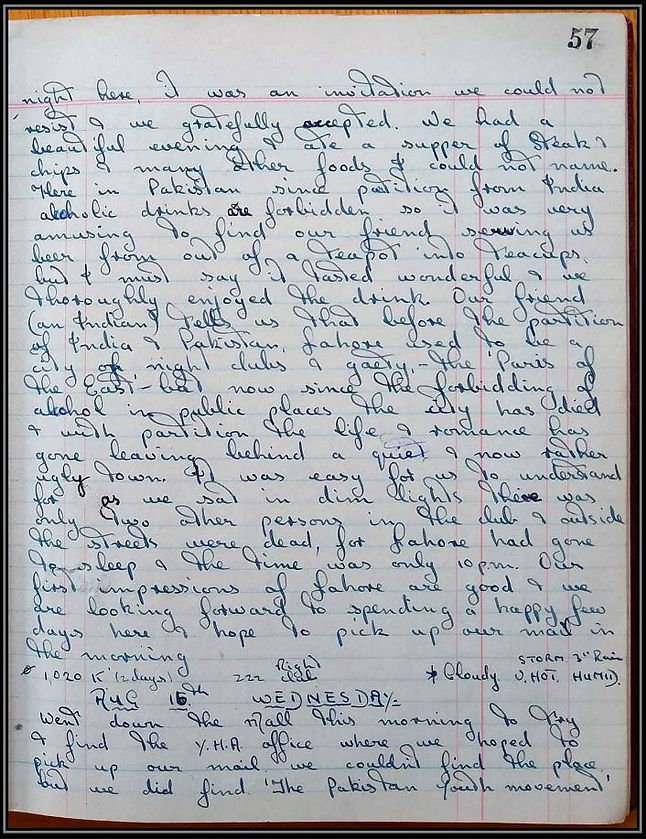 57
night here, It was an invitation we could not
resist & we gratefully accepted. We had a
beautiful evening & ate a supper of Steak &
chips & many other foods I could not name.
Here in Pakistan since patition from India
alcoholic drinks are forbidden so it was very
amusing to find our friend serving us
beer from out of a teapot into teacups.
but I must say it tasted wonderful & we
thoroughly enjoyed the drink. Our friend
(an Indian) tells us that before the partition
of India & Pakistan. Lahore used to be a
city of night clubs & gaety, - the 'Paris of
the East' - but now since the forbidding of
alcohol in public places the city has died
& with partition the life & romance has
gone leaving behind a quiet & now rather
ugly town. It was easy for us to understand
for as we sat in dim lights there was
only two other persons in the club & outside
the streets were dead, for Lahore had gone
to sleep & the time was only 10 pm. Our
first impressions of Lahore are good & we
are looking forward to spending a happy few
days here & hope to pick up our mail in
the morning
1,020 K (2 days) 222 * Cloudy STORM 3" Rain V. HOT. HUMID.
AUG 16th WEDNESDAY
Went down the Mall this morning to try
& find the Y.H.A. office where we hoped to
pick up our mail. we couldn't find the place
but we did find 'The Pakistan Youth movement'